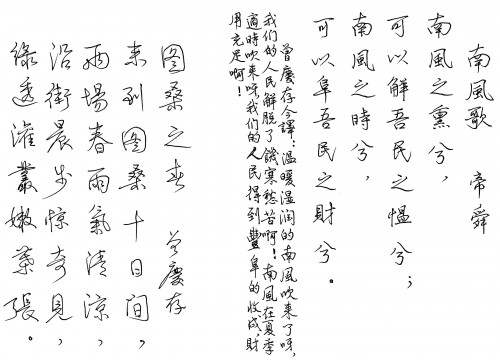 南風歌 帝舜
南風之熏兮,
可以解吾民之愠兮;
南風之時兮,
可以阜吾民之財兮。
曾慶存今譯:温暖湿润的南風吹来了呀,
我们的人民解脱了饑寒愁苦啊!南風在夏季
適時吹来呀,我们的人民得到豐阜的收成,財
用充足啊!
图桑之春 曾慶存
来到图桑十日间,
两場春雨氣清凉,
沿街晨步惊奇見,
綠透灌叢嫩葉張。